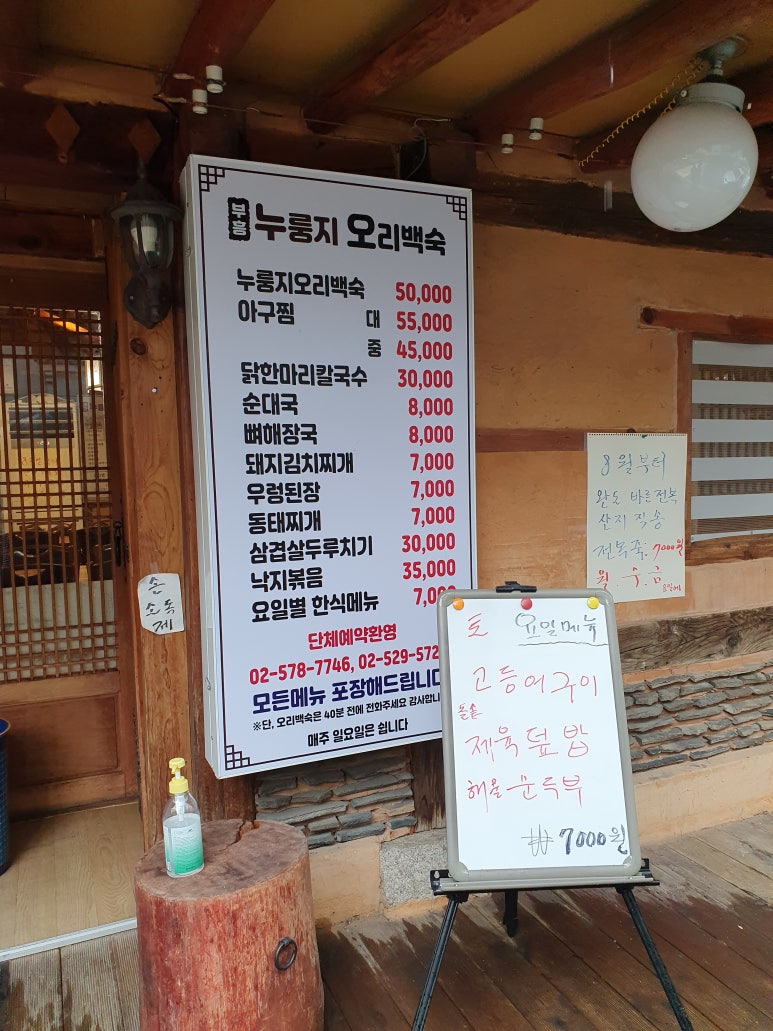 부흥 누룽지 오리백숙
누룽지오리백숙 50,000
아구찜 대 55,000
중 45,000
닭한마리칼국수 30,000
순대국 8,000
뼈해장국 8,000
돼지김치찌개 7,000
우렁된장 7,000
동태찌개 7,000
삼겹살두루치기 30,000
낙지볶음 35,000
요일별 한식메뉴 7,00
단체예약환영
02-578-7746, 02-529-572
모든메뉴 포장해드립니다
※단, 오리백숙은 40분 전에 전화주세요 감사합니
매주 일요일은 쉽니다
손
소독
제
8월부터
완도 바른전복
산지 직송
전복죽. 7000원
월. 수. 금
요일메뉴
토 요일메뉴
고등어구이
돌솥
제육덮밥
해물순두부
₩ 7000원